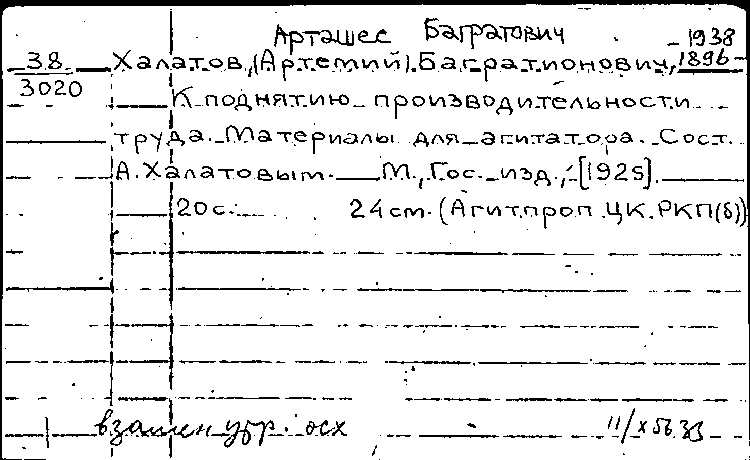 Арташес Багратович 1938
38 Халатов, (Артемий). Багратионович, 1896-
3020
К поднятию производительности
труда. Материалы для агитатора. Сост.
А. Халатовым. М., Гос. изд., [1925].
20 с. 24 см. (Агитпроп ЦК РКП(б))
взамен осх 11/X 56